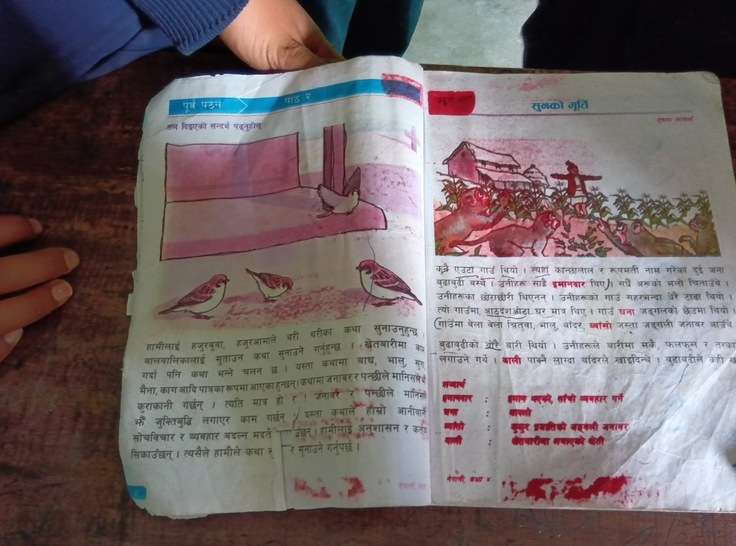 पूर्व पठन
पाठ २
तल दिइएको सन्दर्भ पढ्नुहोस् :
हामीलाई हजुरबुबा, हजुरआमाले थरी थरीका कथा सुनाउनुहुन्छ ।
बालबालिकालाई सुताउन कथा सुनाउने गर्नुहुन्छ । खेतबारीमा काम
गर्दा पनि कथा भन्ने चलन छ । यस्ता कथामा बाघ, भालु, सुगा,
मैना, काग आदि पात्रका रूपमा आएका हुन्छन् । कथामा जनावर र पन्छीले मानिसले झैँ
कुराकानी गर्छन् । त्यति मात्र हो र । जनावर र पन्छीले मानिसले
झैँ जुक्तिबुद्धि लगाएर काम गर्छन् । यस्ता कथाले हाम्रो आनीबानी
सोचविचार र व्यवहार बदल्न मदत उँछन् । हामीलाई अनुशासन र
सिकाउँछन् । त्यसैले हामीले कथा र सुनाउने गर्नुपर्छ ।
सुनको मूर्ति
कुनै एउटा गाउँ थियो । त्यहाँ कान्छालाल र रूपमती नाम गरेका दुई जना
बुढाबुढी बस्थे । उनीहरू साह्रै इमानदार थिए । सधैँ अरूको भलो चिताउँथे ।
उनीहरूका छोराछोरी थिएनन् । उनीहरूको गाउँ सहरभन्दा धेरै टाढा थियो ।
त्यो गाउँमा आठदसओटा घर मात्र थिए । गाउँ घना जङ्गलको छेउमा थियो ।
गाउँमा बेला बेला चितुवा, भालु, बाँदर, ब्वाँसो जस्ता जङ्गली जनावर आउँथे
बुढाबुढीको धेरै बारी थियो । उनीहरूले बारीमा मकै, फलफूल र तरका
लगाउने गर्थे । बाली पाक्नै लाग्दा बाँदरले खाइदिन्थे । बुढाबुढीले केही
शब्दार्थ
इमानदार :
घना : बाक्लो
ब्वाँसो : कुकुर प्रजातिको जङ्गली जनावर
बाली : खेतबारीमा लगाएको खेती
नेपाली, कक्षा ४